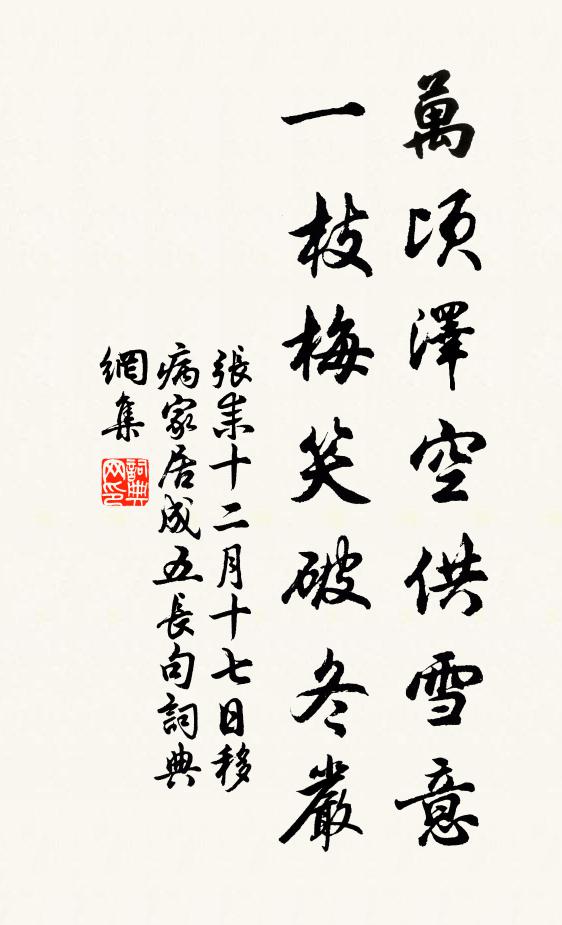 萬頃澤空供雪意
一枝梅笑破冬嚴
張耒十二月十七日移
病家居成五長句詞典
網集
詞典網印